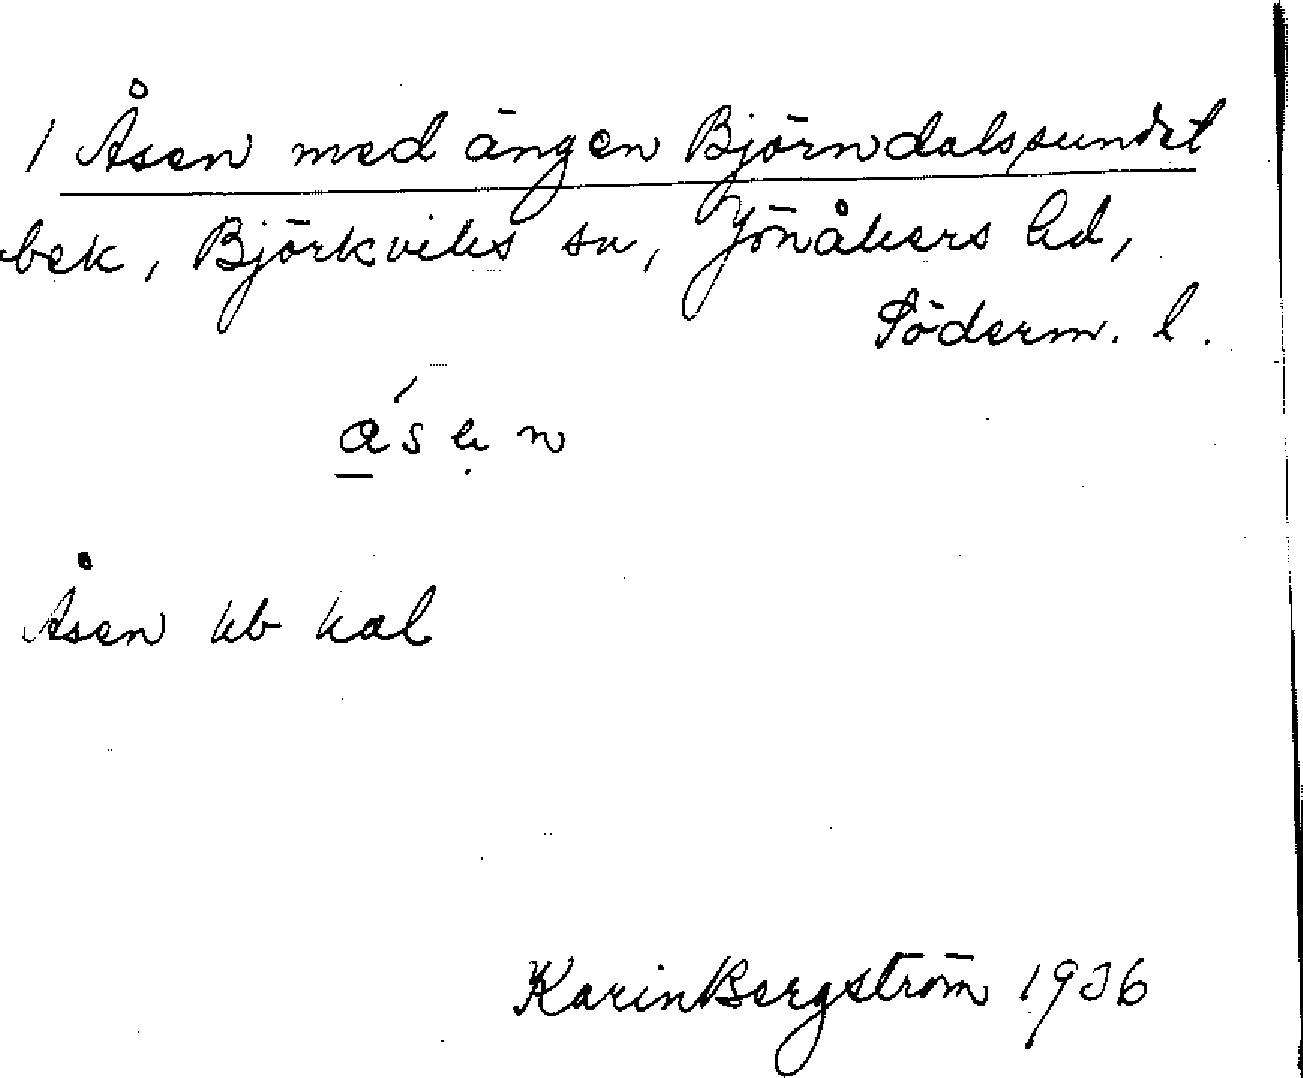 1 Åsen med ängen Björndalssundet
bek, Björkviks sn, Jönåkers hd,
Söderm. l.
Åsen kb kal
Karin Bergström 1936